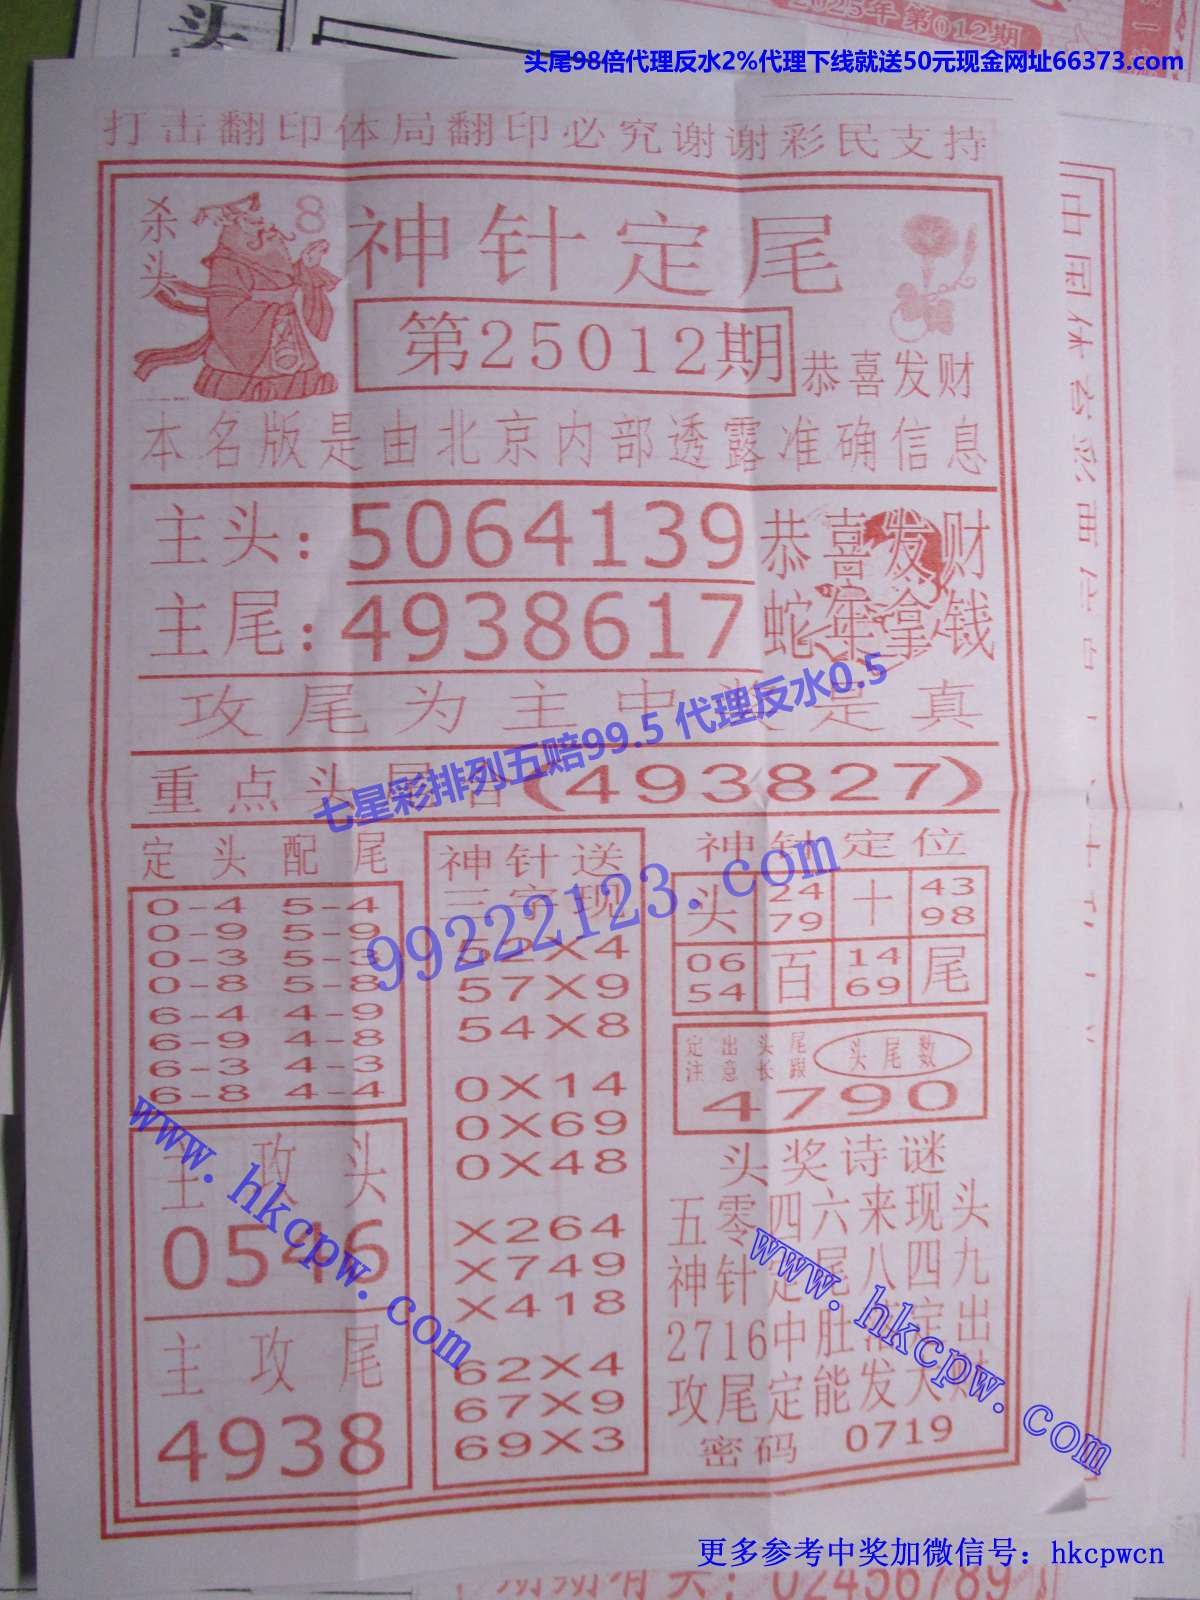 2025年第012期
头尾98倍代理反水2%代理下线就送50元现金网址66373.com
打击翻印体局翻印必究谢谢彩民支持
杀头 8
神针定尾
第25012期
恭喜发财
本名版是由北京内部透露准确信息
主头:5064139
恭喜发财
主尾:4938617
蛇年拿钱
攻尾为主中 是真
七星彩排列五赔99.5 代理反水0.5
重点头尾 (493827)
定头配尾
0-4 5-4
0-9 5-9
0-3 5-3
0-8 5-8
6-4 4-9
6-9 4-8
6-3 4-3
6-8 4-4
主攻头
0546
主攻尾
4938
神针送
三字现
52X4
57X9
54X8
0X14
0X69
0X48
X264
X749
X418
62X4
67X9
69X3
神针定位
头 24 79 十 43 98
06 54 百 14 69 尾
定出头尾
注意长跟
头尾数
4790
头奖诗谜
五零四六来现头
神针定尾八四九
2716中肚 定出
攻尾定能发大财
密码 0719
99222123.com
www.hkcpw.com
www.hkcpw.com
更多参考中奖加微信号：hkcpwcn